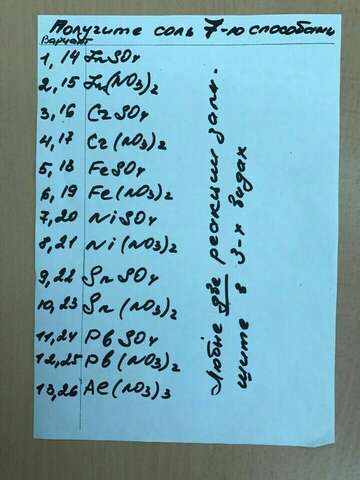 Получите соль 7-ю способами
Вариант
1, 14 ZnSO4
2, 15 Zn(NO3)2
3, 16 CrSO4
4, 17 Cr(NO3)2
5, 18 FeSO4
6, 19 Fe(NO3)2
7, 20 NiSO4
8, 21 Ni(NO3)2
9, 22 SnSO4
10, 23 Sn(NO3)2
11, 24 PbSO4
12, 25 Pb(NO3)2
13, 26 Al(NO3)3
Любые две реакции запи-
шите в 3-х видах